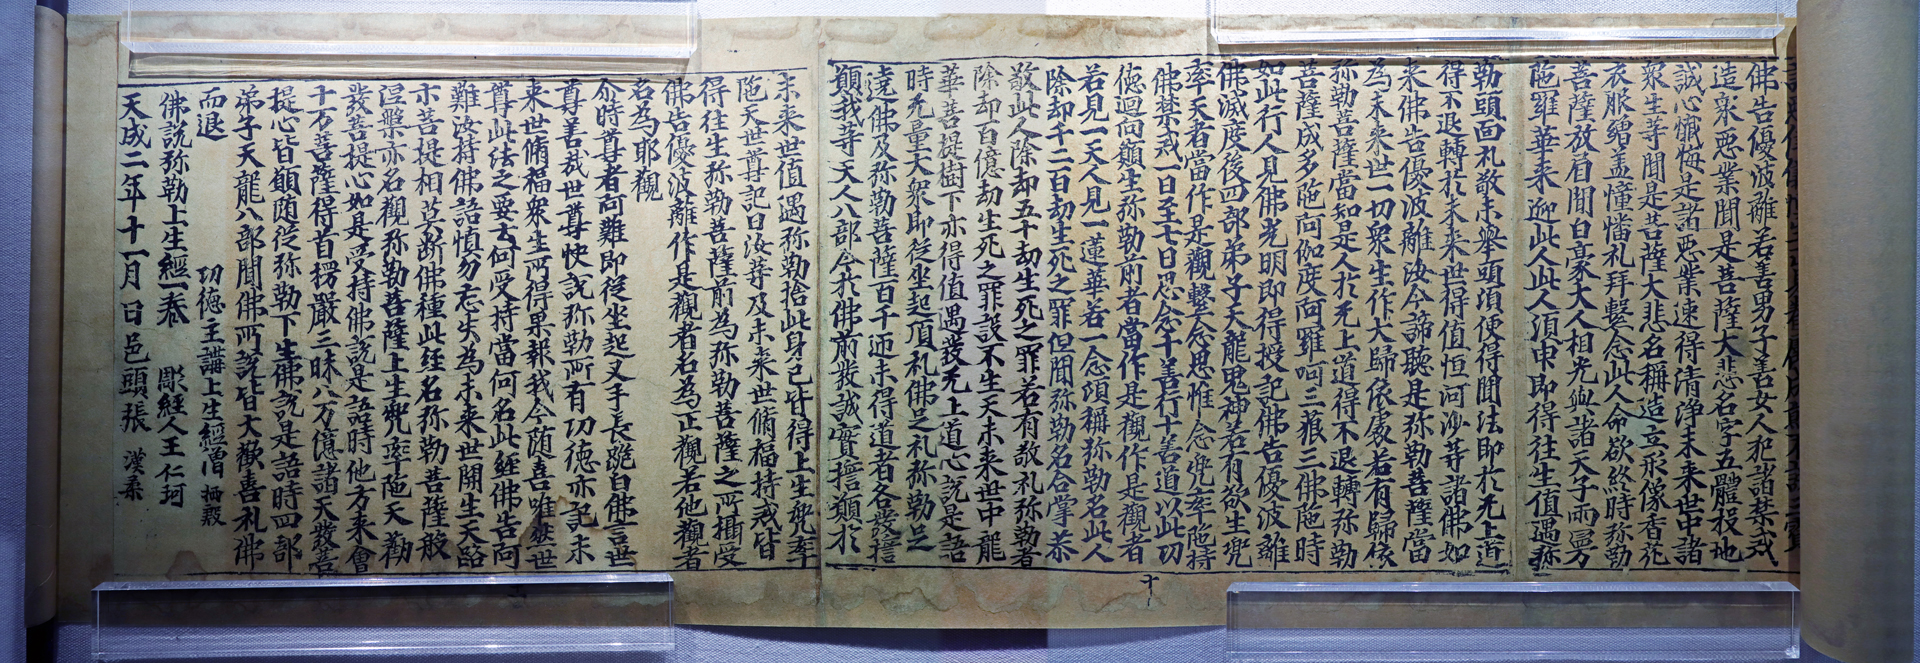 佛告優波離若善男子善女人犯諸禁戒
造衆惡業聞是菩薩大悲名字五體投地
誠心懺悔是諸惡業速得清淨未來世中諸
衆生等聞是菩薩大悲名稱造立形像香花
衣服繒盖幢幡礼拜繫念此人命欲終時弥勒
菩薩放眉間白豪大人相光與諸天子雨曼
陁羅華来迎此人此人須申即得往生值遇弥
勒頭面礼敬未舉頭頃便得聞法即於无上道
得不退轉於未来世得值恒河沙等諸佛如
来佛告優波離汝今諦聽是弥勒菩薩當
為未来世一切衆生作大歸依處若有歸依
弥勒菩薩當知是人於无上道得不退轉弥勒
菩薩成多陁阿伽度阿羅呵三藐三佛陁時
如此行人見佛光明即得授記佛告優波離
佛滅度後四部弟子天龍鬼神若有欲生兜
率天者當作是觀繫念思惟念兜率陁持
佛禁戒一日至七日思念十善行十善道以此功
德迴向願生弥勒前者當作是觀作是觀者
若見一天人見一蓮華若一念頃稱弥勒名此人
除却千二百劫生死之罪但聞弥勒名合掌恭
敬此人除却五十劫生死之罪若有敬礼弥勒者
除却百億劫生死之罪設不生天未来世中龍
華菩提樹下亦得值遇發无上道心說是語
時无量大衆即從坐起頂礼佛足礼弥勒足
遶佛及弥勒菩薩百千迊未得道者各發誓
願我等天人八部今於佛前發誠實誓願於
未来世值遇弥勒捨此身已皆得上生兜率
陁天世尊記曰汝等及未来世脩福持戒皆
得往生弥勒菩薩前為弥勒菩薩之所攝受
佛告優波離作是觀者名為正觀若他觀者
名為耶觀
尒時尊者阿難即從坐起叉手長跪白佛言世
尊善哉世尊快說弥勒所有功德亦記未
来世脩福衆生所得果報我今随喜唯然世
尊此法之要云何受持當何名此經佛告阿
難汝持佛語慎勿忘失為未来世開生天路
示菩提相莫断佛種此経名弥勒菩薩般
涅槃亦名觀弥勒菩薩上生兜率陁天勸
發菩提心如是受持佛說是語時他方来會
十万菩薩得首楞嚴三昧八万億諸天發菩
提心皆願随從弥勒下生佛說是語時四部
弟子天龍八部聞佛所說皆大歡喜礼佛
而退
功德主講上生經僧栖殷
佛說弥勒上生經一卷 彫經人王仁珂
天成二年十一月日邑頭張漢柔
十